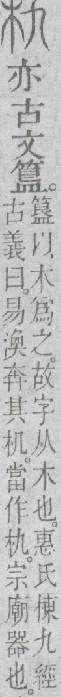 朹亦古文簋。
簋以木爲之。故字从木也。惠氏棟九經
古義曰。易渙奔其机。當作朹。宗廟器也